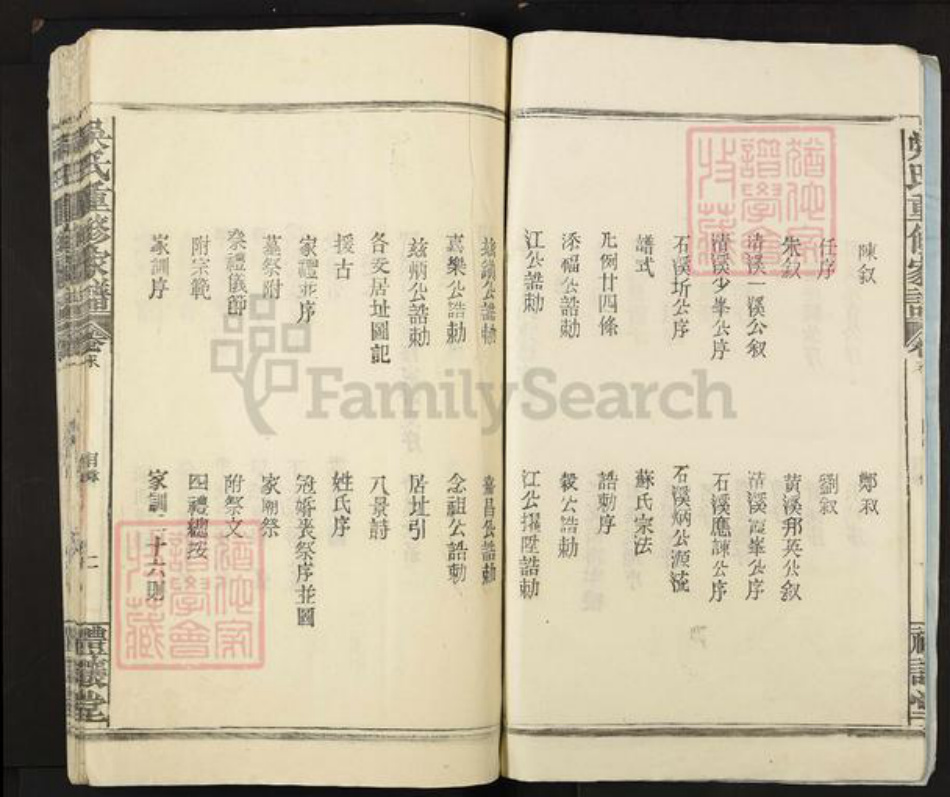 陳叙
鄭叙
任序
劉叙
朱叙
黃溪邦英公叙
清溪一溪公叙
清溪霞峯公序
清溪少峯公序
石溪應諫公序
石溪圻公序
石溪炳公源流
譜式
蘇氏宗法
凡例廿四條
誥勅序
添福公誥勅
毅公誥勅
江公誥勅
江公擢陞誥勅
兹績公誥勅
嘉昌公誥勅
嘉樂公誥勅
念祖公誥勅
兹炳公誥勅
居址引
各支居址圖記
八景詩
援古
姓氏序
家禮並序
冠婚喪祭序並圖
墓祭附
家廟祭
祭禮儀節
附祭文
附宗範
四禮總按
家訓序
家訓二十六則
吳氏重修家譜
禮讓堂
FamilySearch
猶他家
譜學會
收藏